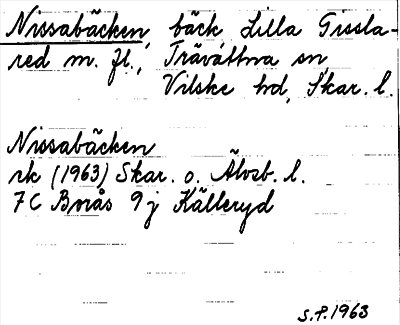 Nissabäcken, bäck Lilla Gissla-
red m. fl., Trävattna sn
Vilske hd, Skar. l.
Nissabäcken
rk (1963) Skar. o. Älvsb. l.
7C Borås 9j Källeryd
S.P. 1963